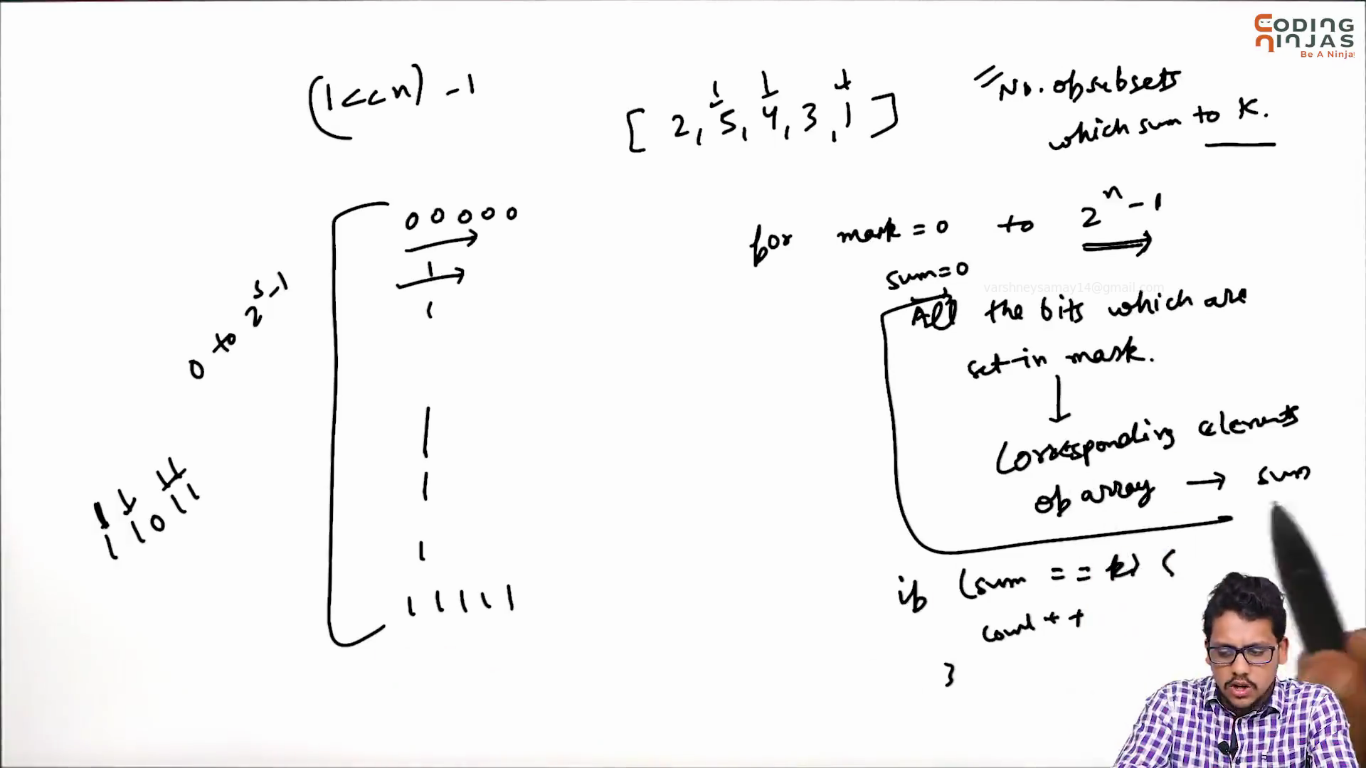 CODING
NINJAS
Be A Ninja
(1<<n) -1
[ 2, 5, 4, 3, 1 ]
No. of subsets
which sum to K.
0 0 0 0 0
1
1
1
1
1
1 1 1 1 1
0 to 2^5-1
1 1 0 1 1
for mask = 0 to 2^n - 1
sum=0
varshneysamay14@gmail.com
All the bits which are
set in mask.
Corresponding elements
of array → sum
if (sum == k) {
count++
}